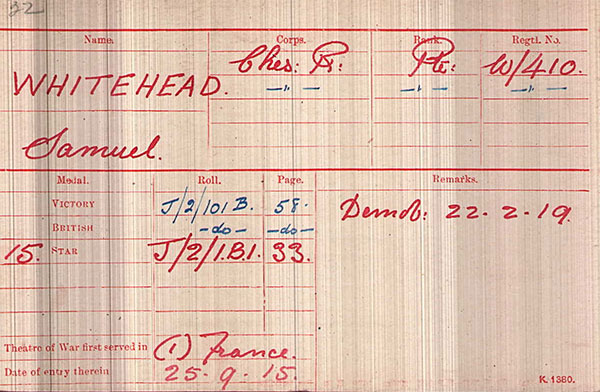 32
Name. Corps. Rank. Regtl. No.
WHITEHEAD. Ches: R: Pte. W/410.
—"— —"— —"—
Samuel.
Medal. Roll. Page. Remarks.
VICTORY J/2/101B. 58. Demob: 22.2.19.
BRITISH -do- -do-
15. STAR J/2/1.B.1. 33.
Theatre of War first served in (1) France.
Date of entry therein 25.9.15.
K. 1380.